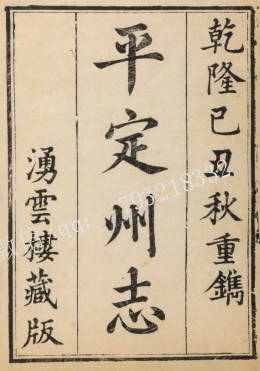 乾隆己丑秋重鐫
平定州志
湧雲樓藏版